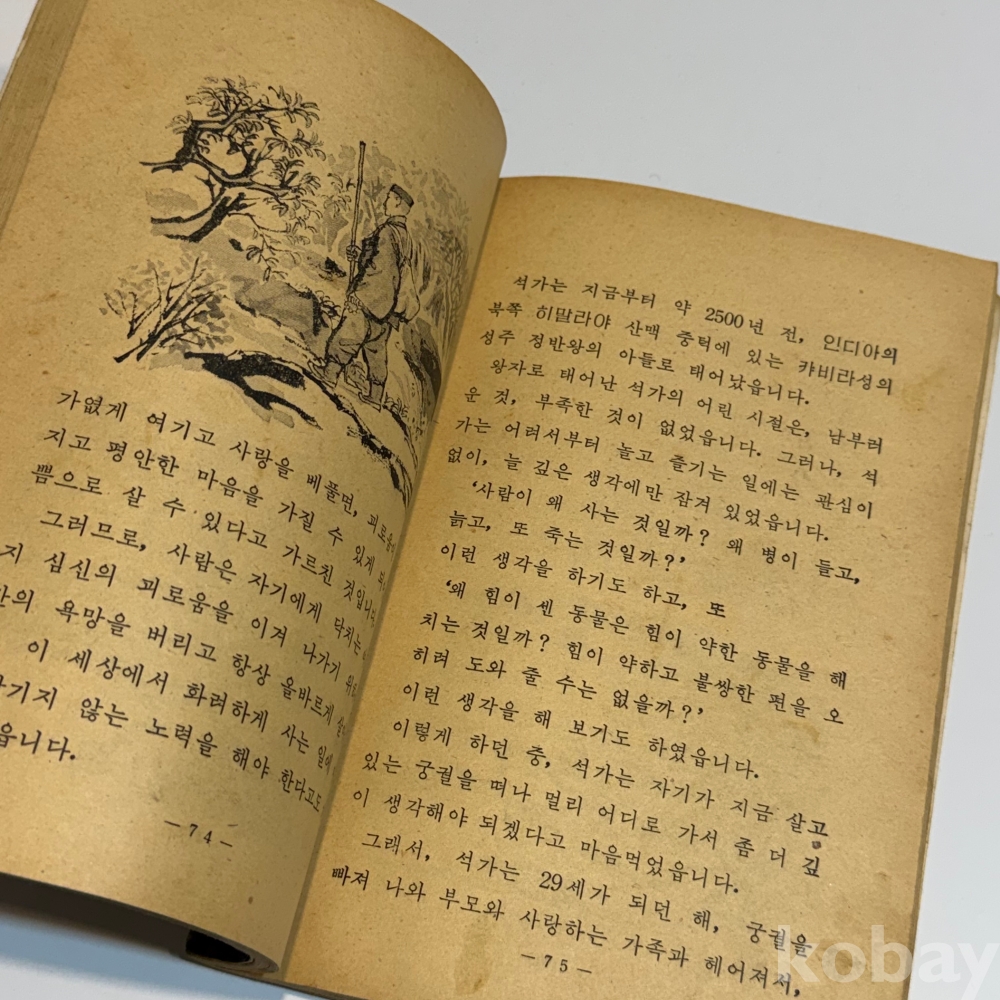 가엾게 여기고 사랑을 베풀면, 괴로움
지고 평안한 마음을 가질 수 있게
쁨으로 살 수 있다고 가르친 것입니다
그러므로, 사람은 자기에게 닥치는
지 심신의 괴로움을 이겨 나가기
의 욕망을 버리고 항상 올바르게
이 세상에서 화려하게 사는 일에
기지 않는 노력을 해야 한다고도
읍니다.
— 7 4 —
석가는 지금부터 약 2500년 전, 인디아의
북쪽 히말라야 산맥 중턱에 있는 캬비라성의
성주 정반왕의 아들로 태어났읍니다.
왕자로 태어난 석가의 어린 시절은, 남부러
운 것, 부족한 것이 없었읍니다. 그러나, 석
가는 어려서부터 놀고 즐기는 일에는 관심이
없이, 늘 깊은 생각에만 잠겨 있었읍니다.
‘사람이 왜 사는 것일까? 왜 병이 들고,
늙고, 또 죽는 것일까?’
이런 생각을 하기도 하고, 또
‘왜 힘이 센 동물은 힘이 약한 동물을 해
치는 것일까? 힘이 약하고 불쌍한 편을 오
히려 도와 줄 수는 없을까?’
이런 생각을 해 보기도 하였읍니다.
이렇게 하던 중, 석가는 자기가 지금 살고
있는 궁궐을 떠나 멀리 어디로 가서 좀 더 깊
이 생각해야 되겠다고 마음먹었읍니다.
그래서, 석가는 29세가 되던 해, 궁궐을
빠져 나와 부모와 사랑하는 가족과 헤어져서,
— 7 5 —
kobay